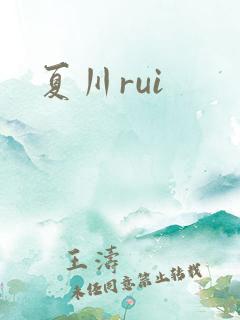 夏川rui
王涛
未经同意禁止转载